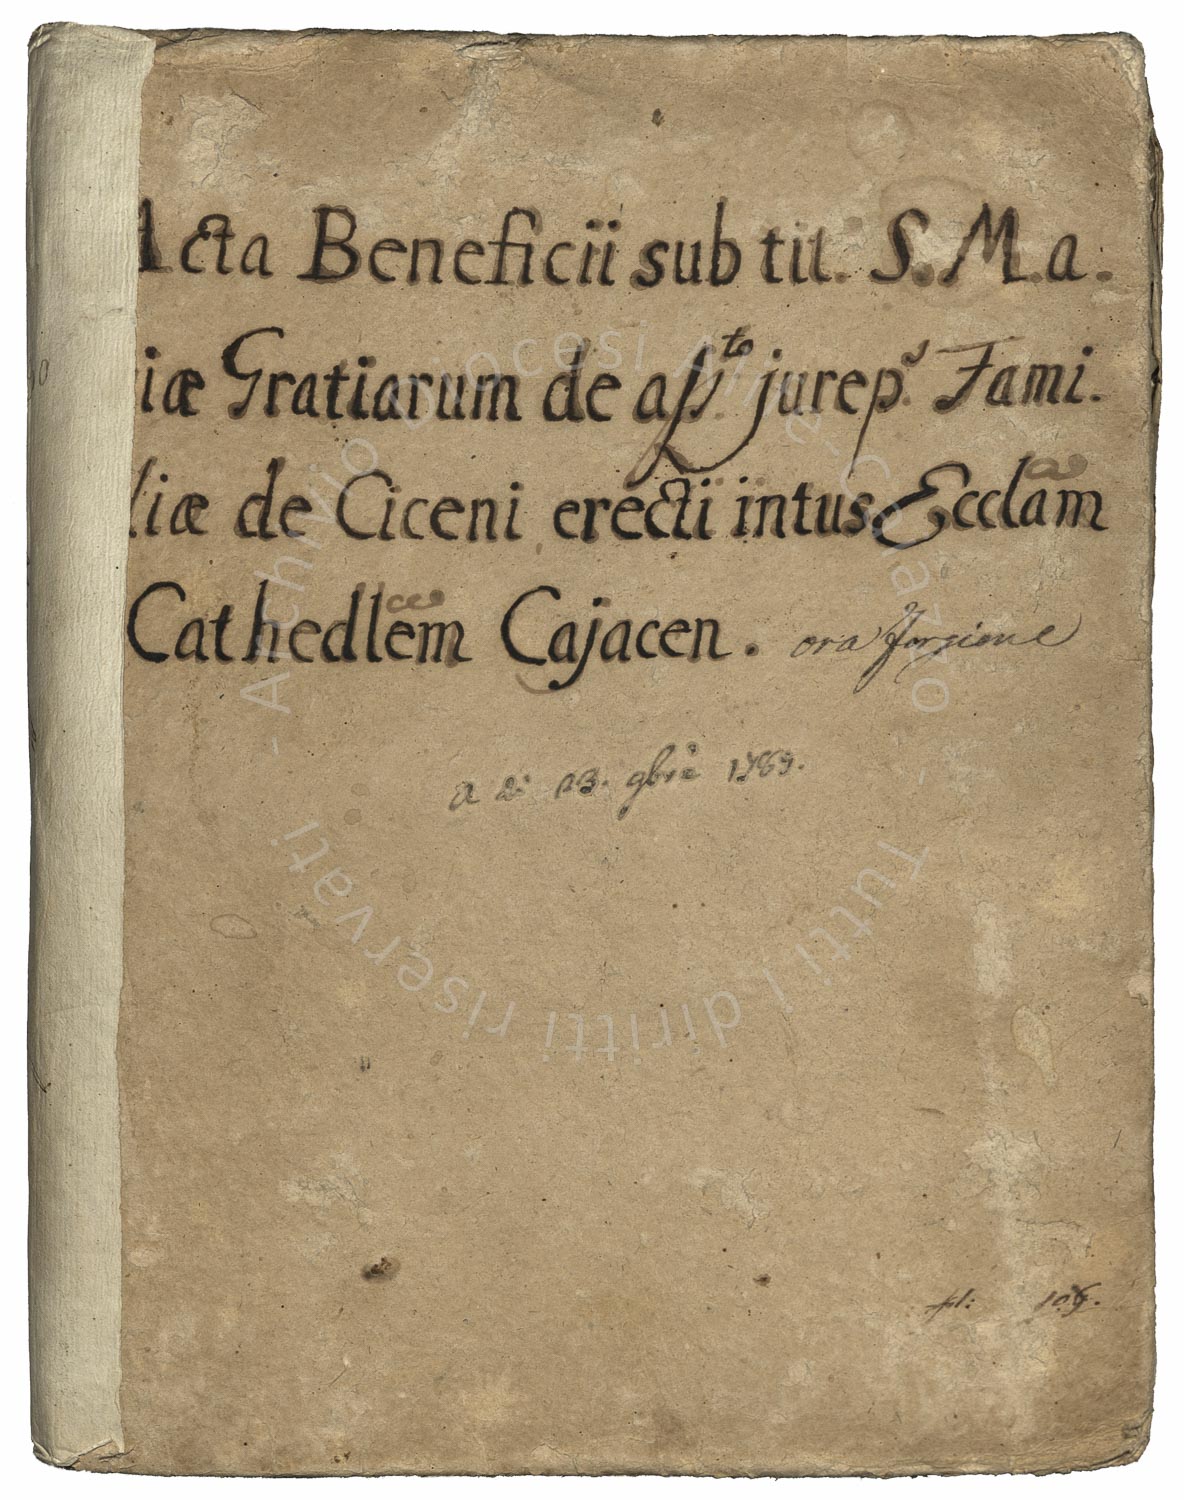 Acta Beneficii sub tit. S. Ma.
iæ Gratiarum de aſſ.to jurep.s Fami.
liæ de Ciceni erecti intus Ecclãm
Cathedlẽm Cajacen. ora forgione
A di 23. 9bre 1789.
fol: 105.
90
Archivio Diocesi Alife-Caiazzo - Tutti i diritti riservati -